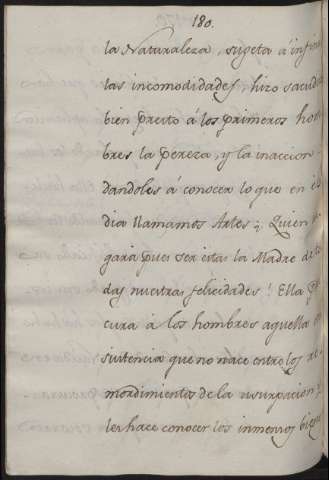 180.
la Naturaleza, sugeta á infini
las incomodidades, hizo sacudir
bien presto á los primeros hom
bres la pereza, y la inaccion
dandoles á conocer lo que en el
dia llamamos Artes; Quien ne
gará pues ser esta la Madre de to
das nuestras felicidades! Ella pro
cura á los hombres aquella
sistencia que no nace entre los re
mordimientos de la usurpacion, y
les hace conocer los inmensos bienes